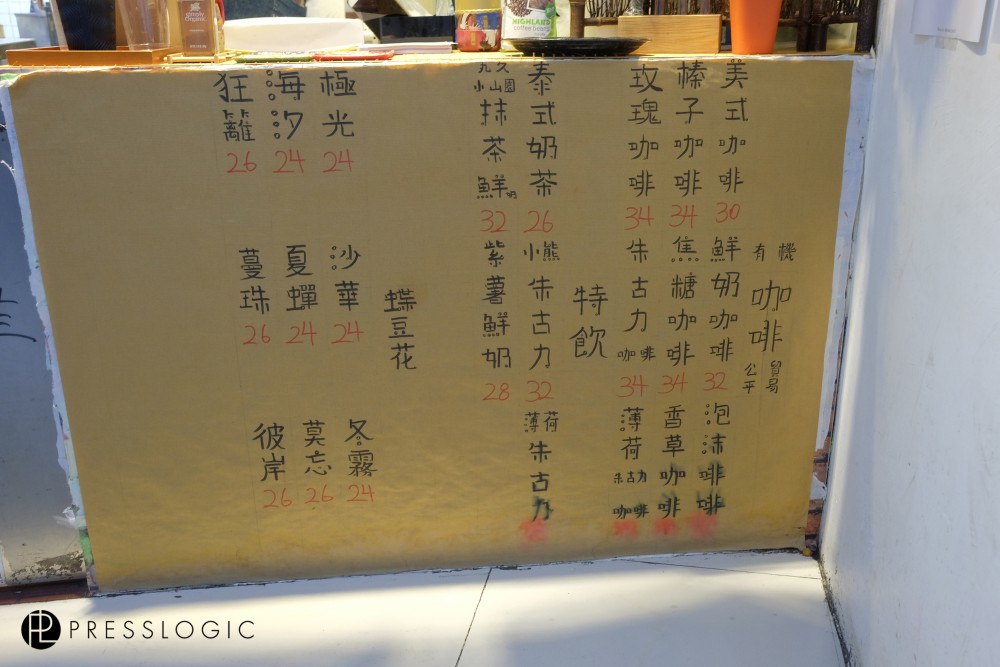 有機
咖啡
公平
貿易
美式咖啡
30
鮮奶咖啡
32
泡沫
榛子咖啡
34
焦糖咖啡
34
香草咖啡
玫瑰咖啡
34
朱古力咖啡
34
薄荷朱古力咖啡
特飲
泰式奶茶
26
小熊朱古力
32
薄荷朱古力
丸久
小山園
抹茶鮮奶
32
紫薯鮮奶
28
蝶豆花
極光
24
沙華
24
冬霧
24
海汐
24
夏蟬
24
莫忘
26
狂籬
26
蔓珠
26
彼岸
26
simply
Organic
HIGHLANDS
coffee beans
PL PRESSLOGIC